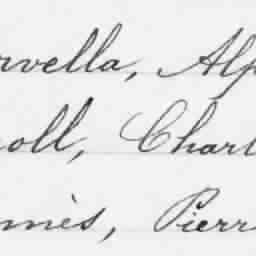 rvella, Alp
oll, Charl
mès, Pierr